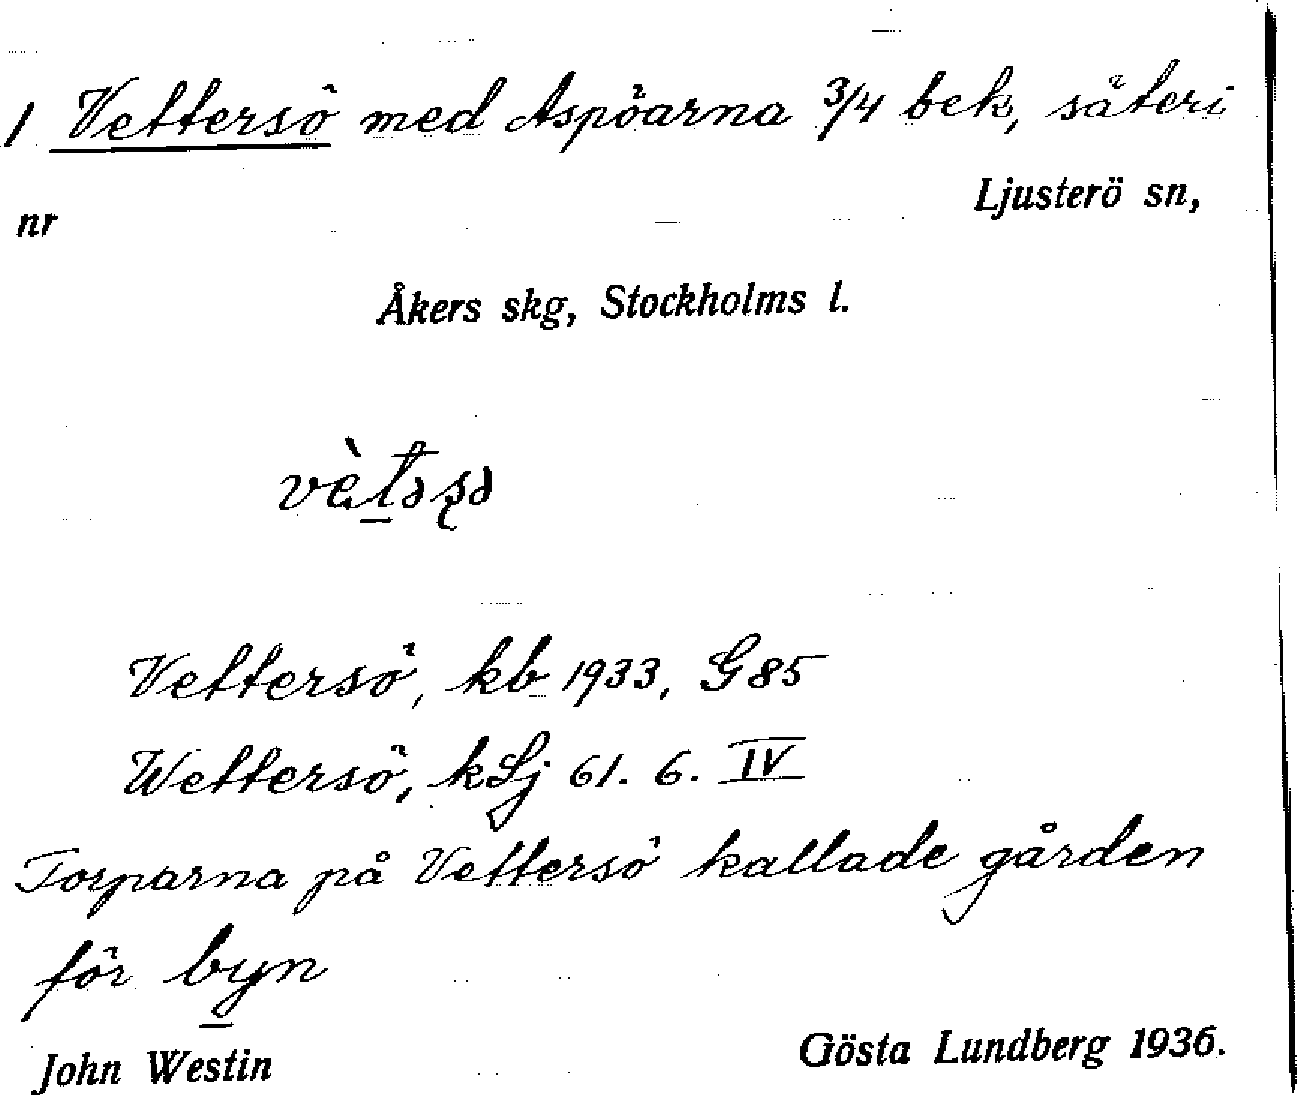 1 Vettersö med Aspöarna 3/4 bek, säteri
Ljusterö sn,
nr
Åkers skg, Stockholms l.
Vettersö, kb 1933, G85
Wettersö, kLj 61. 6. IV
Torparna på Vettersö kallade gården
för byn
John Westin
Gösta Lundberg 1936.